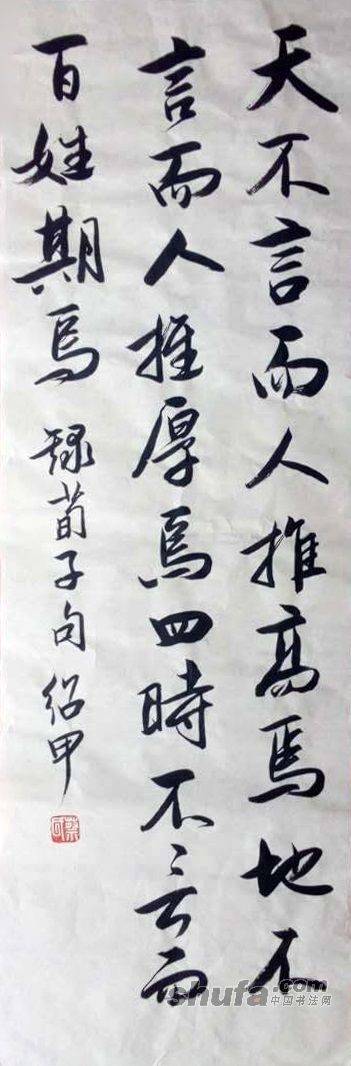 天不言而人推高焉地不
言而人推厚焉四時不言而
百姓期焉 録荀子句 紹甲
shufa.com
中国书法网